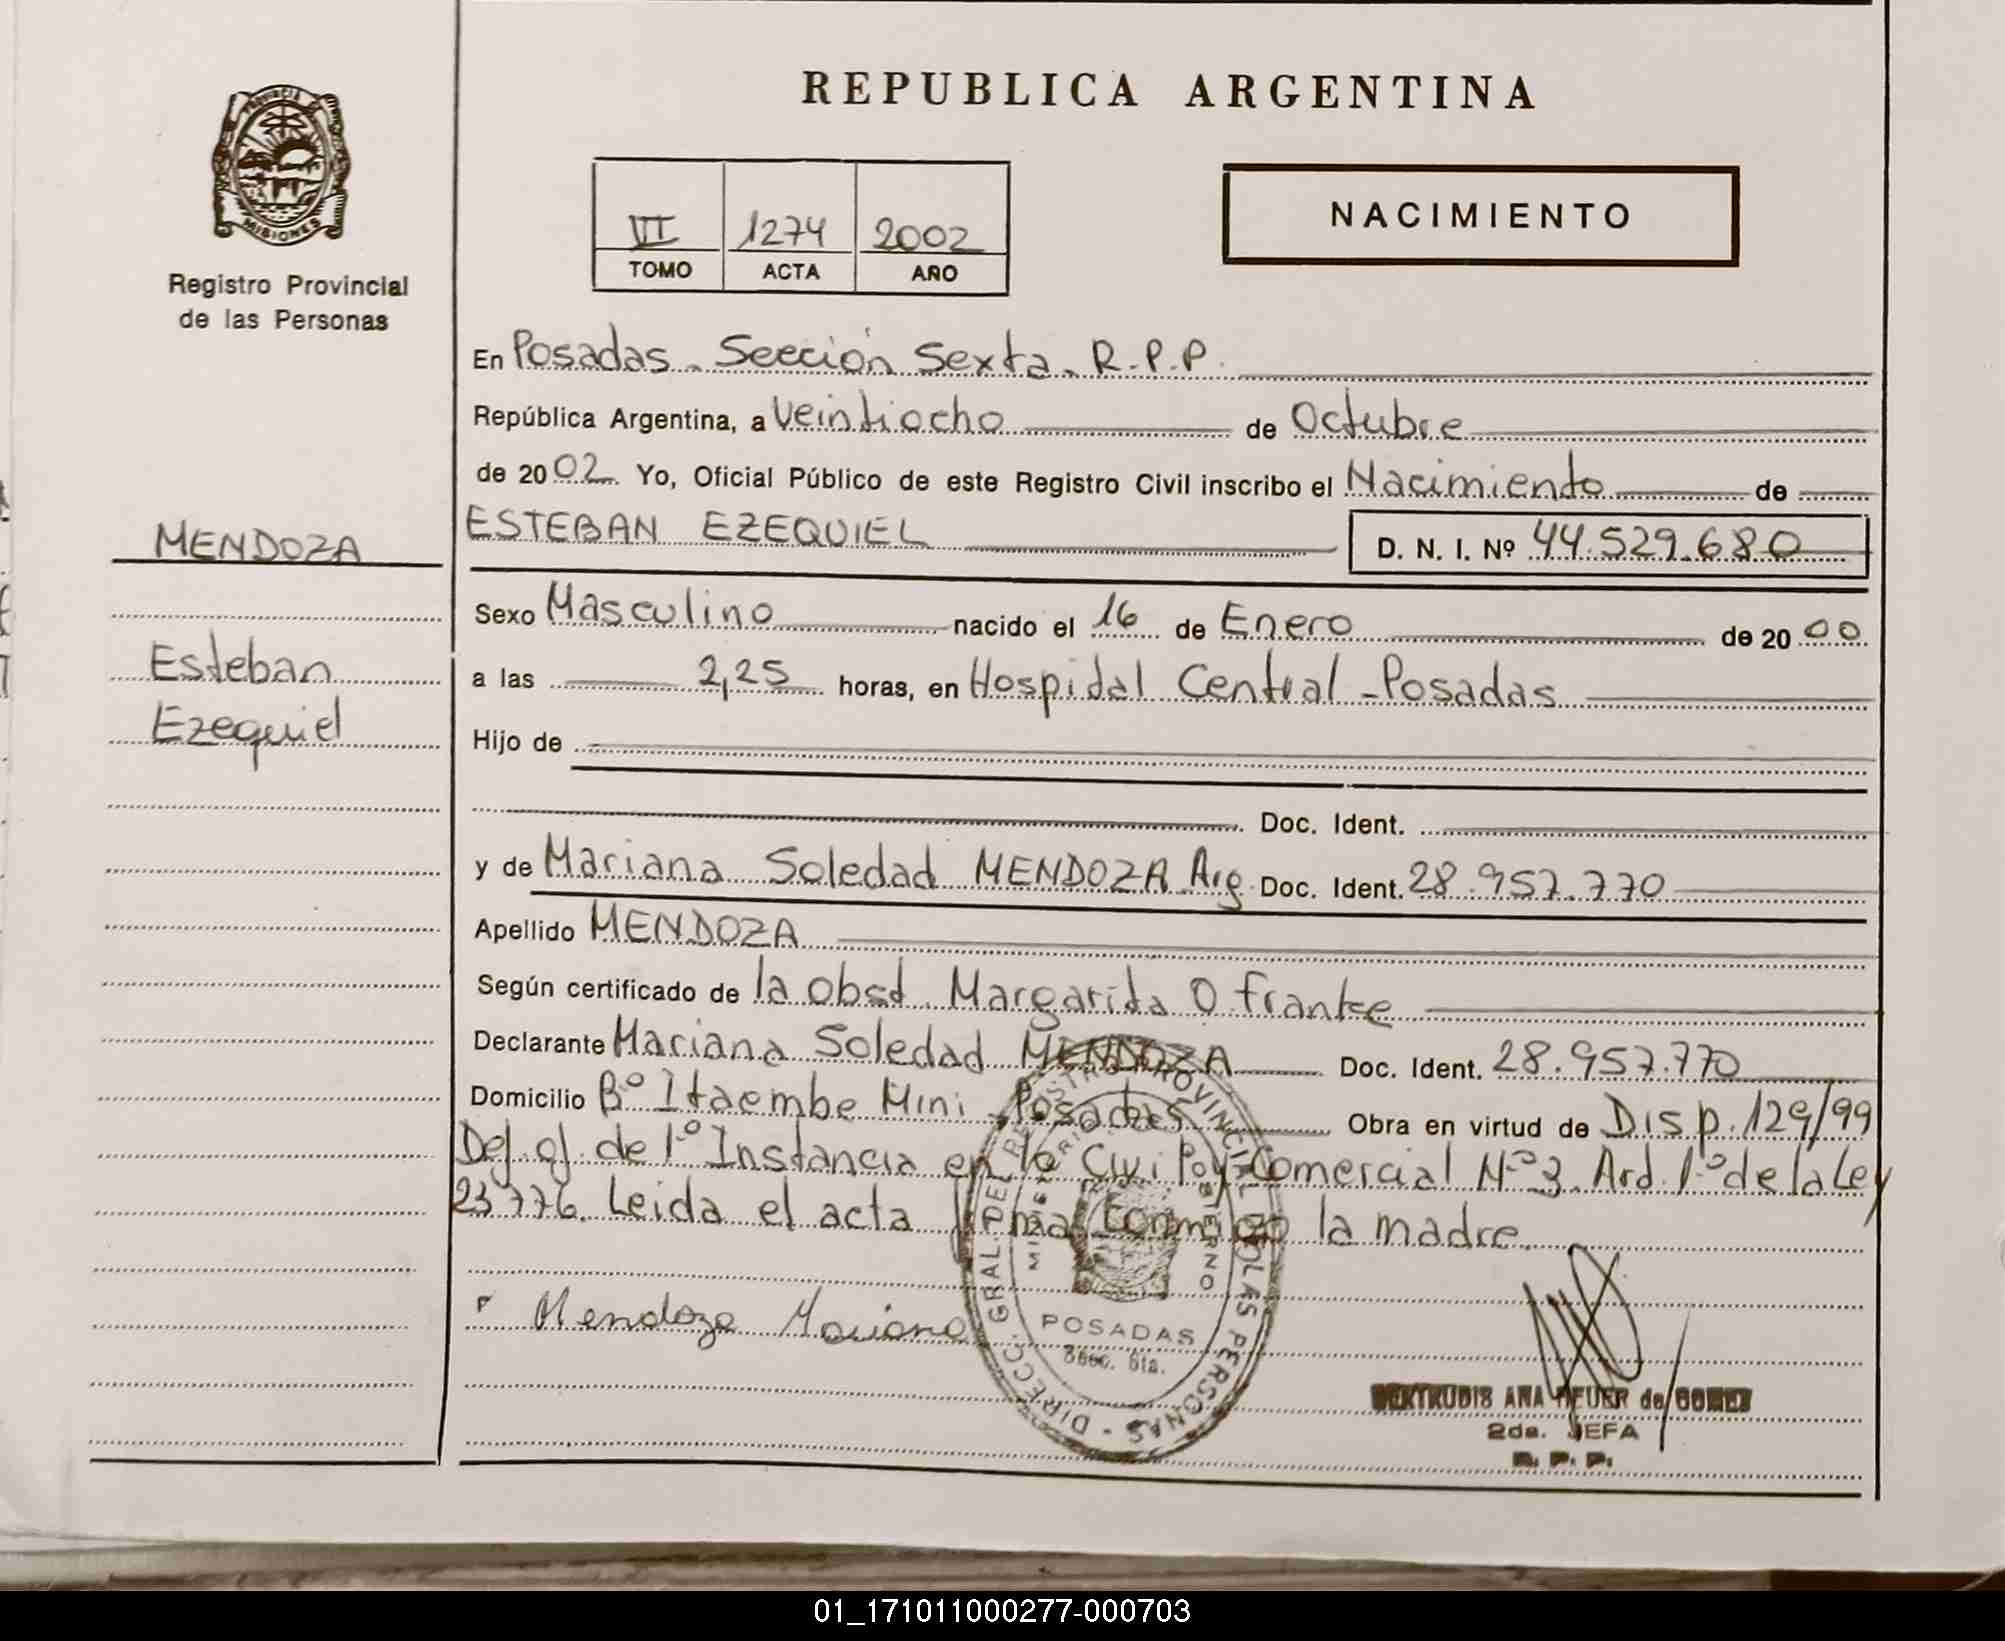 REPUBLICA ARGENTINA
PROVINCIA DE
MISIONES
Registro Provincial
de las Personas
VI 1274 2002
TOMO ACTA AÑO
NACIMIENTO
En Posadas. Sección Sexta. R.P.P.
República Argentina, a Veintiocho de Octubre
de 2002. Yo, Oficial Público de este Registro Civil inscribo el Nacimiento de
MENDOZA
ESTEBAN EZEQUIEL D. N. I. Nº 44.529.680
Sexo Masculino nacido el 16 de Enero de 2000
Esteban
a las 2,25 horas, en Hospital Central - Posadas
Ezequiel
Hijo de
Doc. Ident.
y de Mariana Soledad MENDOZA Arg. Doc. Ident. 28.957.770
Apellido MENDOZA
Según certificado de la obst. Margarita O Franke
Declarante Mariana Soledad MENDOZA Doc. Ident. 28.957.770
Domicilio Bº Itaembe Mini Posadas Obra en virtud de Disp. 129/99
Def. of. de 1º Instancia en lo Civil y Comercial Nº 3. Art. 1º de la Ley
23776. Leida el acta firma conmigo la madre.
Mendoza Mariana
DIRECC. GRAL. DEL REGISTRO PROVINCIAL DE LAS PERSONAS
MINISTERIO GOBIERNO
POSADAS
Secc. 6ta.
GERTRUDIS ANA de GOMEZ
2da. JEFA
R. P. P.
01_171011000277-000703